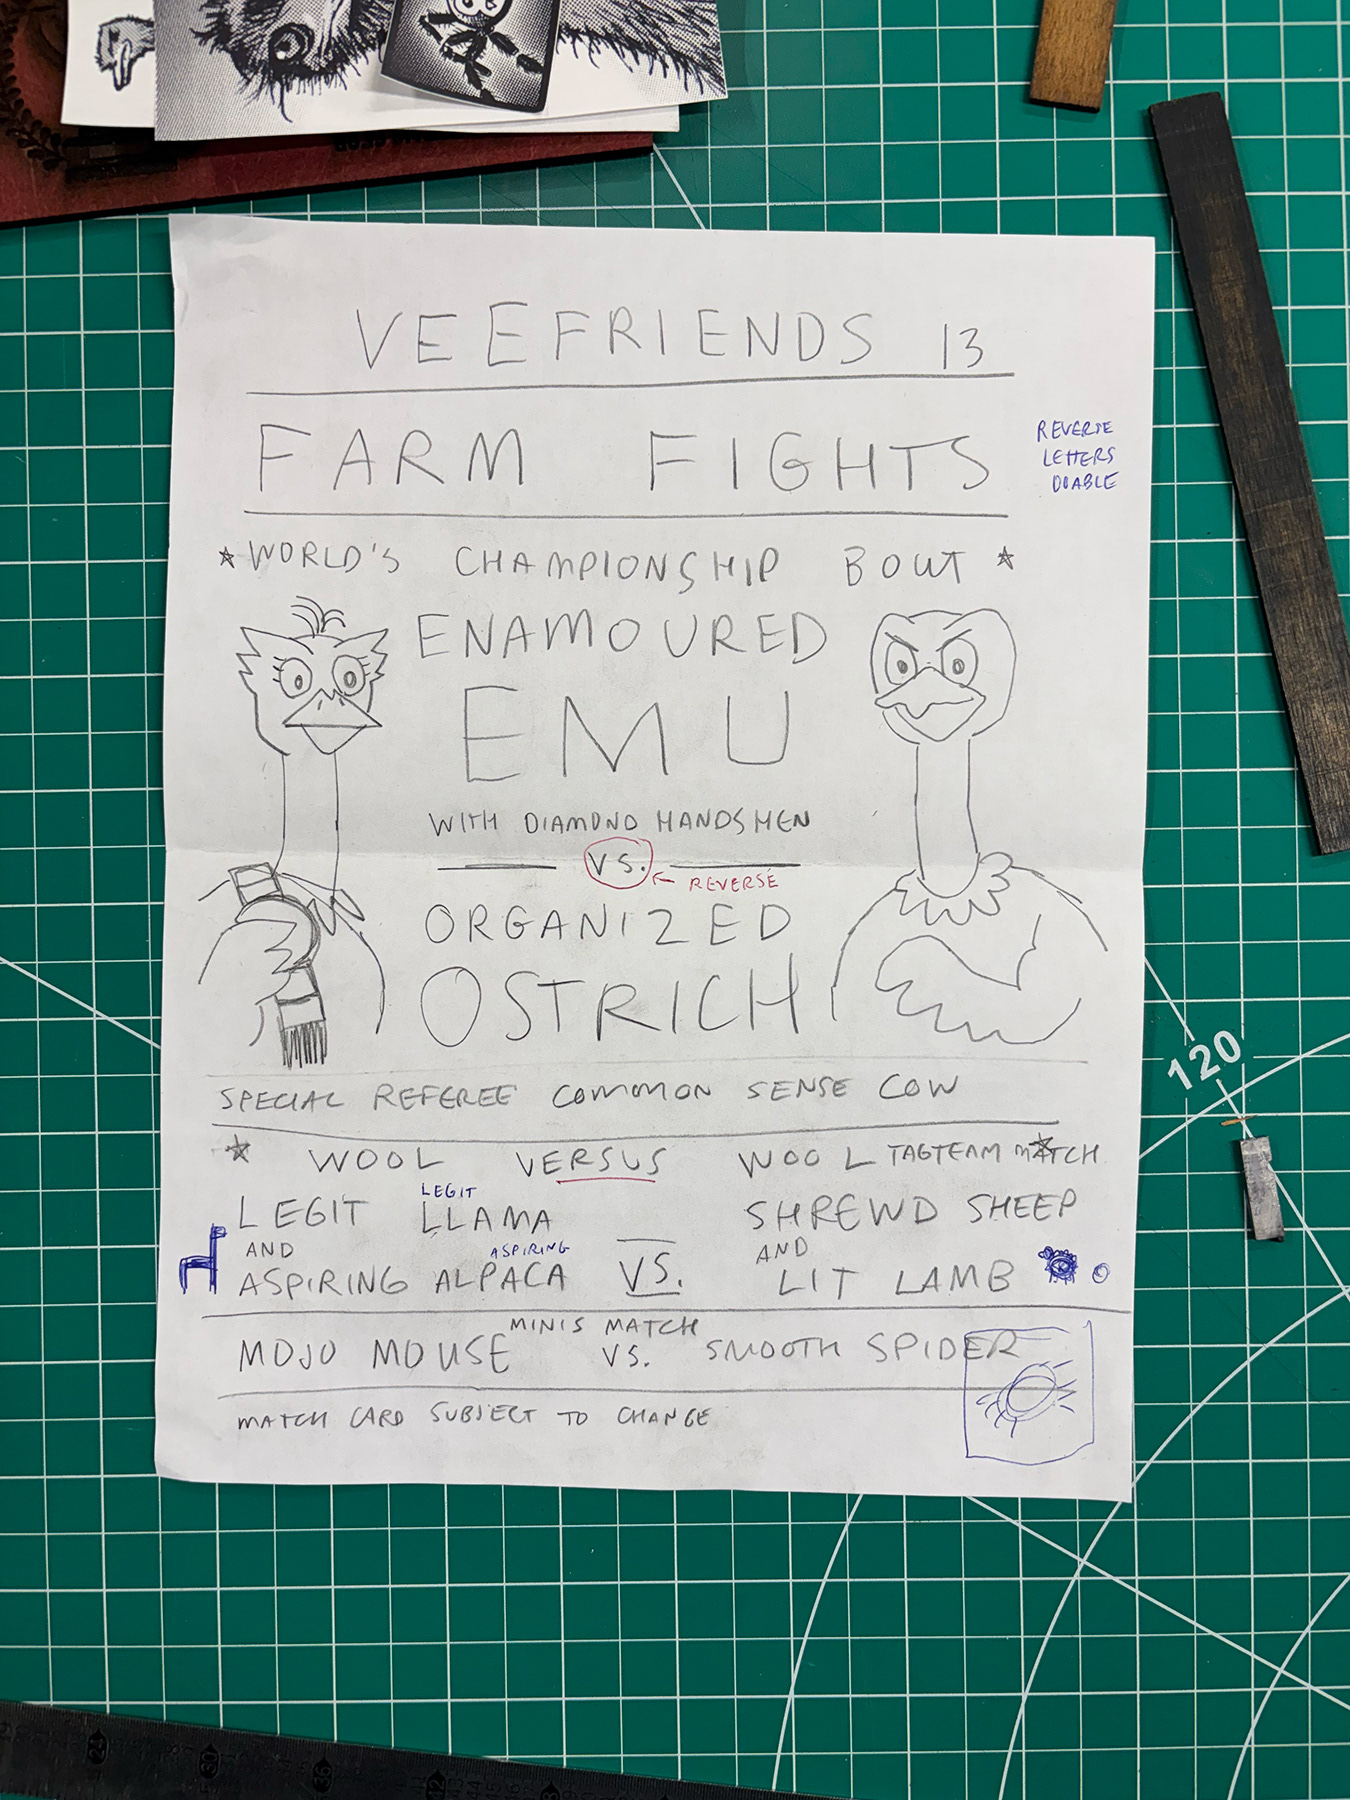 VEEFRIENDS 13
FARM FIGHTS
REVERSE
LETTERS
DOABLE
WORLD'S CHAMPIONSHIP BOUT
ENAMOURED
EMU
WITH DIAMOND HANDS HEN
VS.
REVERSE
ORGANIZED
OSTRICH
SPECIAL REFEREE COMMON SENSE COW
WOOL VERSUS WOOL TAGTEAM MATCH
LEGIT LEGIT LLAMA SHREWD SHEEP
AND ASPIRING AND
ASPIRING ALPACA VS. LIT LAMB
MINIS MATCH
MOJO MOUSE VS. SMOOTH SPIDER
MATCH CARD SUBJECT TO CHANGE
120